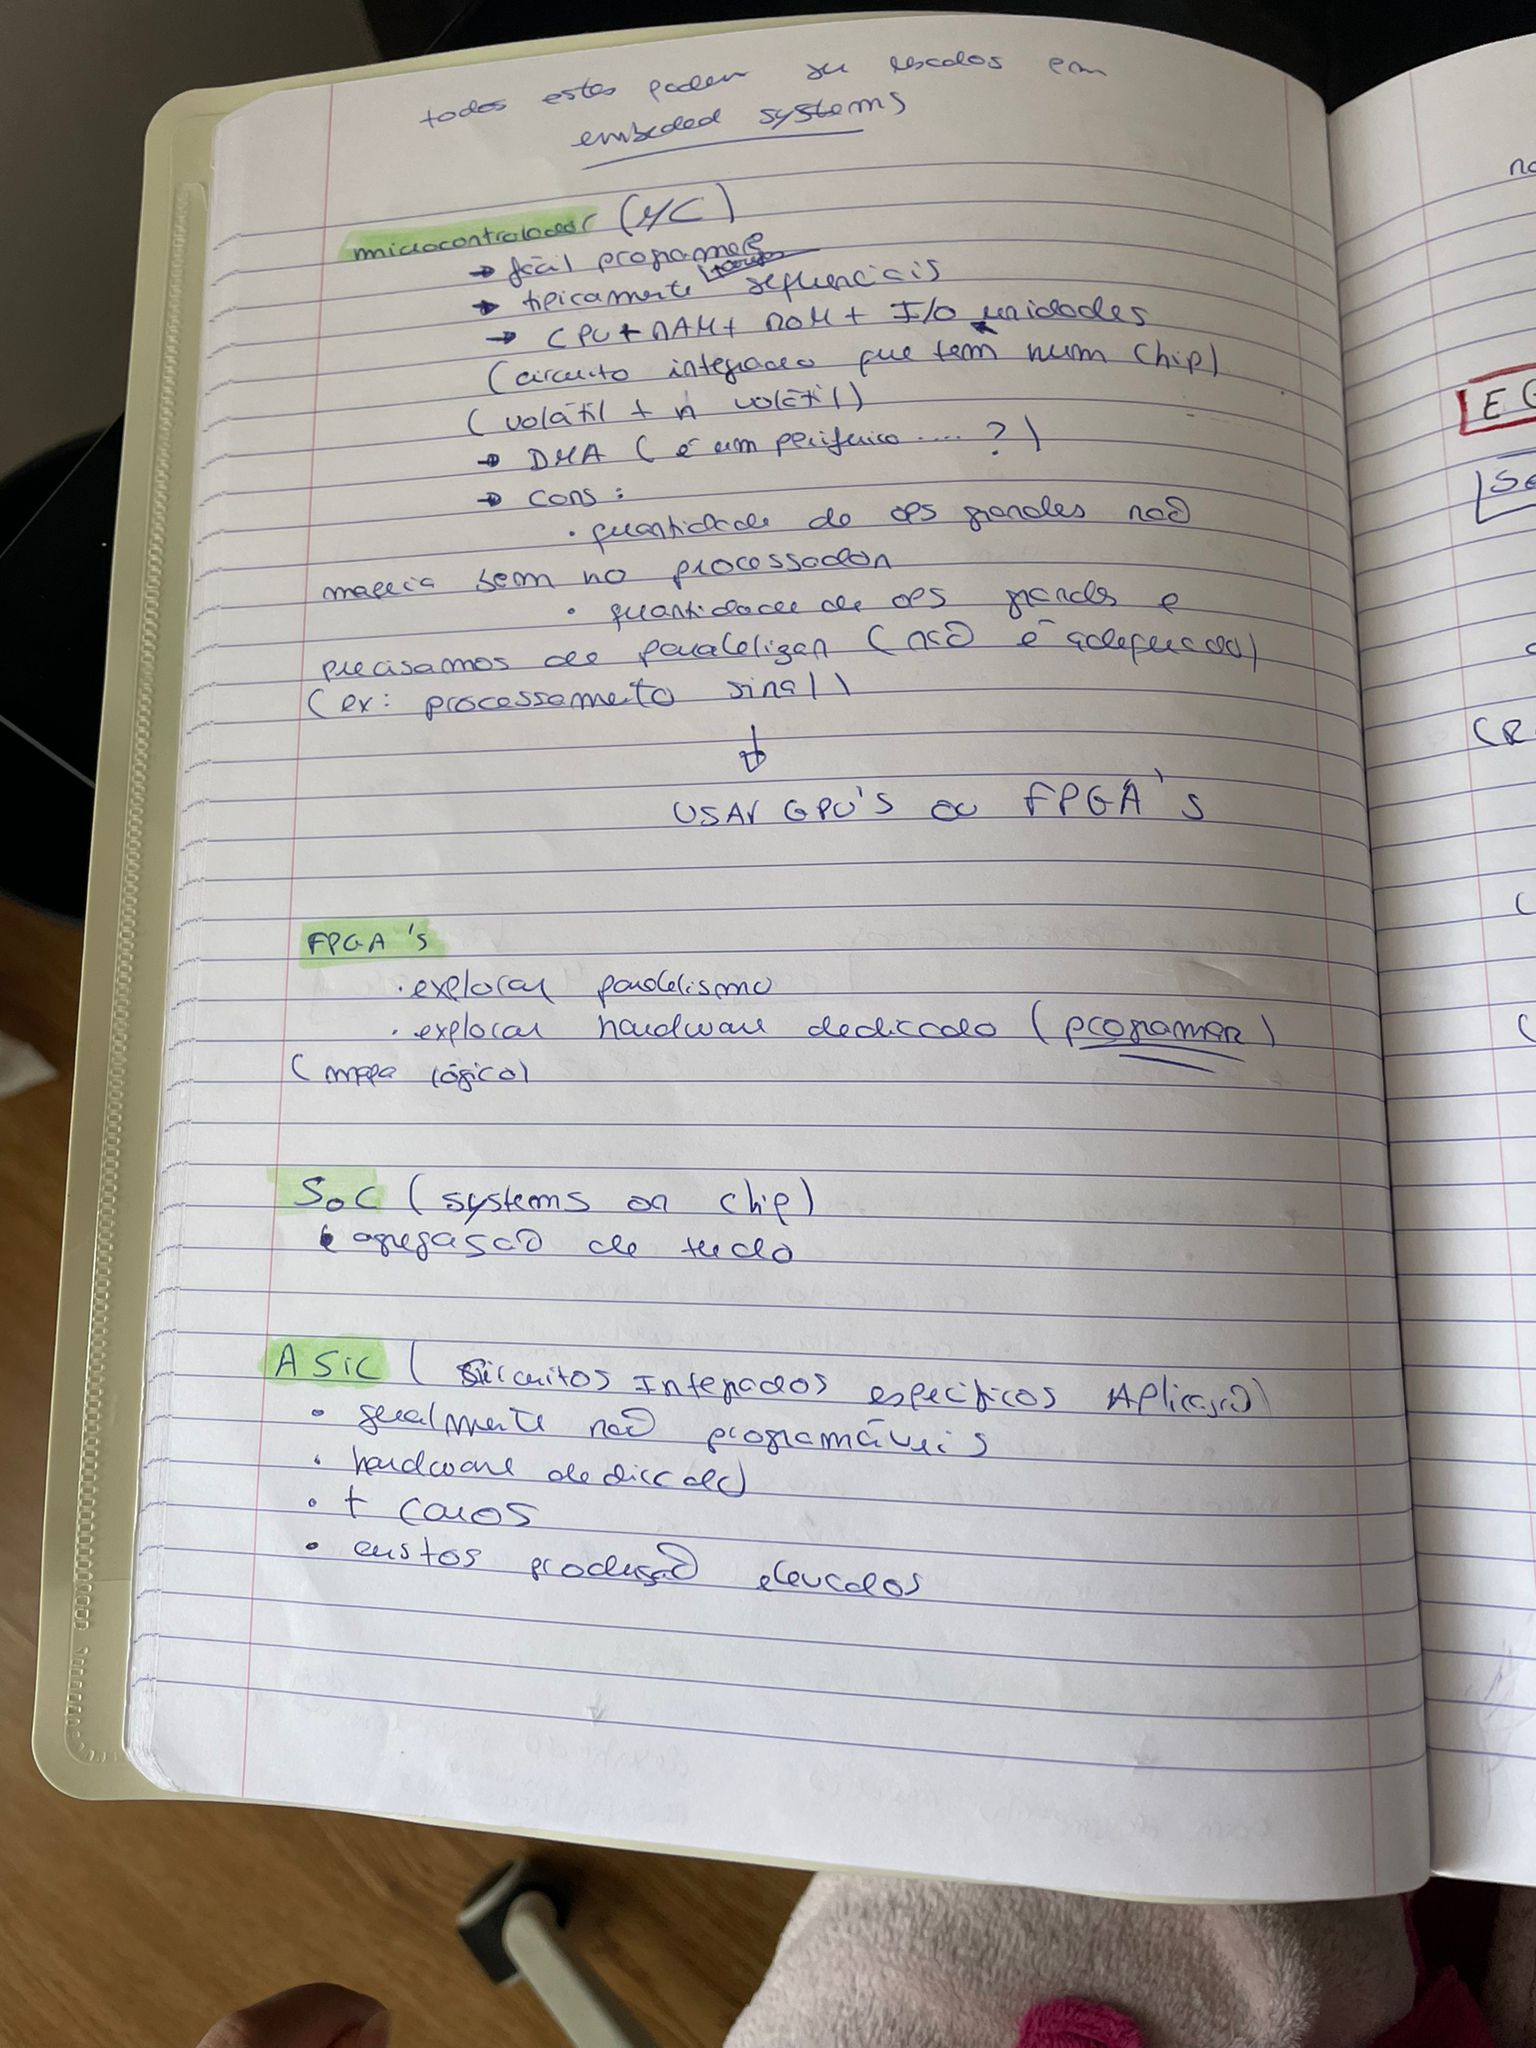 todos estes podem ser usados em
embeded systems
microcontrolador (μC)
→ fácil programar
→ tipicamente sequenciais
→ CPU + RAM + ROM + I/O unidades
(circuito integrado que tem num chip)
(volátil + n volátil)
→ DMA (é um periferico .... ?)
→ cons :
• quantidade de ops grandes não
bem no processador
• quantidade de ops grande e
precisamos de paralelizar (não é adequado)
(ex: processamento sinal)
↓
usar GPU's ou FPGA's
FPGA's
• explorar paralelismo
• explorar hardware dedicado (programar)
(mapa lógico)
SoC (systems on chip)
• agregação de tudo
ASIC (Circuitos Integrados específicos Aplicação)
• geralmente não programáveis
• hardware dedicado
• + caros
• custos produção elevados
no
E G
So
(R
(
(